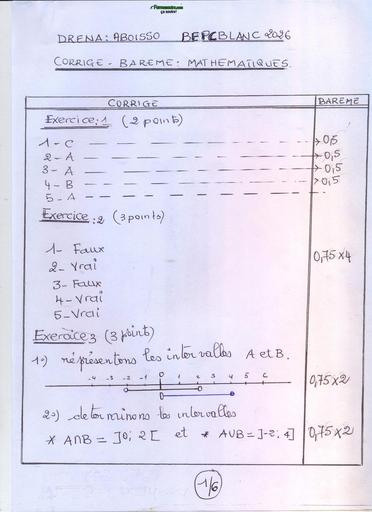 Fomesoutra.com
ça soutra !
DRENA: ABOISSO BEPC BLANC 2026
CORRIGE - BAREME: MATHEMATIQUES.
CORRIGE BAREME
Exercice: 1 (2 points)
1 - C 0,5
2 - A 0,5
3 - A 0,5
4 - B 0,5
5 - A
Exercice: 2 (3 points)
1- Faux 0,75 x 4
2- Vrai
3- Faux
4- Vrai
5- Vrai
Exercice 3 (3 point)
1°) représentons les intervalles A et B.
-4 -3 -2 -1 0 1 2 3 4 5 6 0,75 x 2
2°) determinons les intervalles
* A∩B = ]0; 2[ et * A∪B = ]-2; 4] 0,75 x 2
1/6